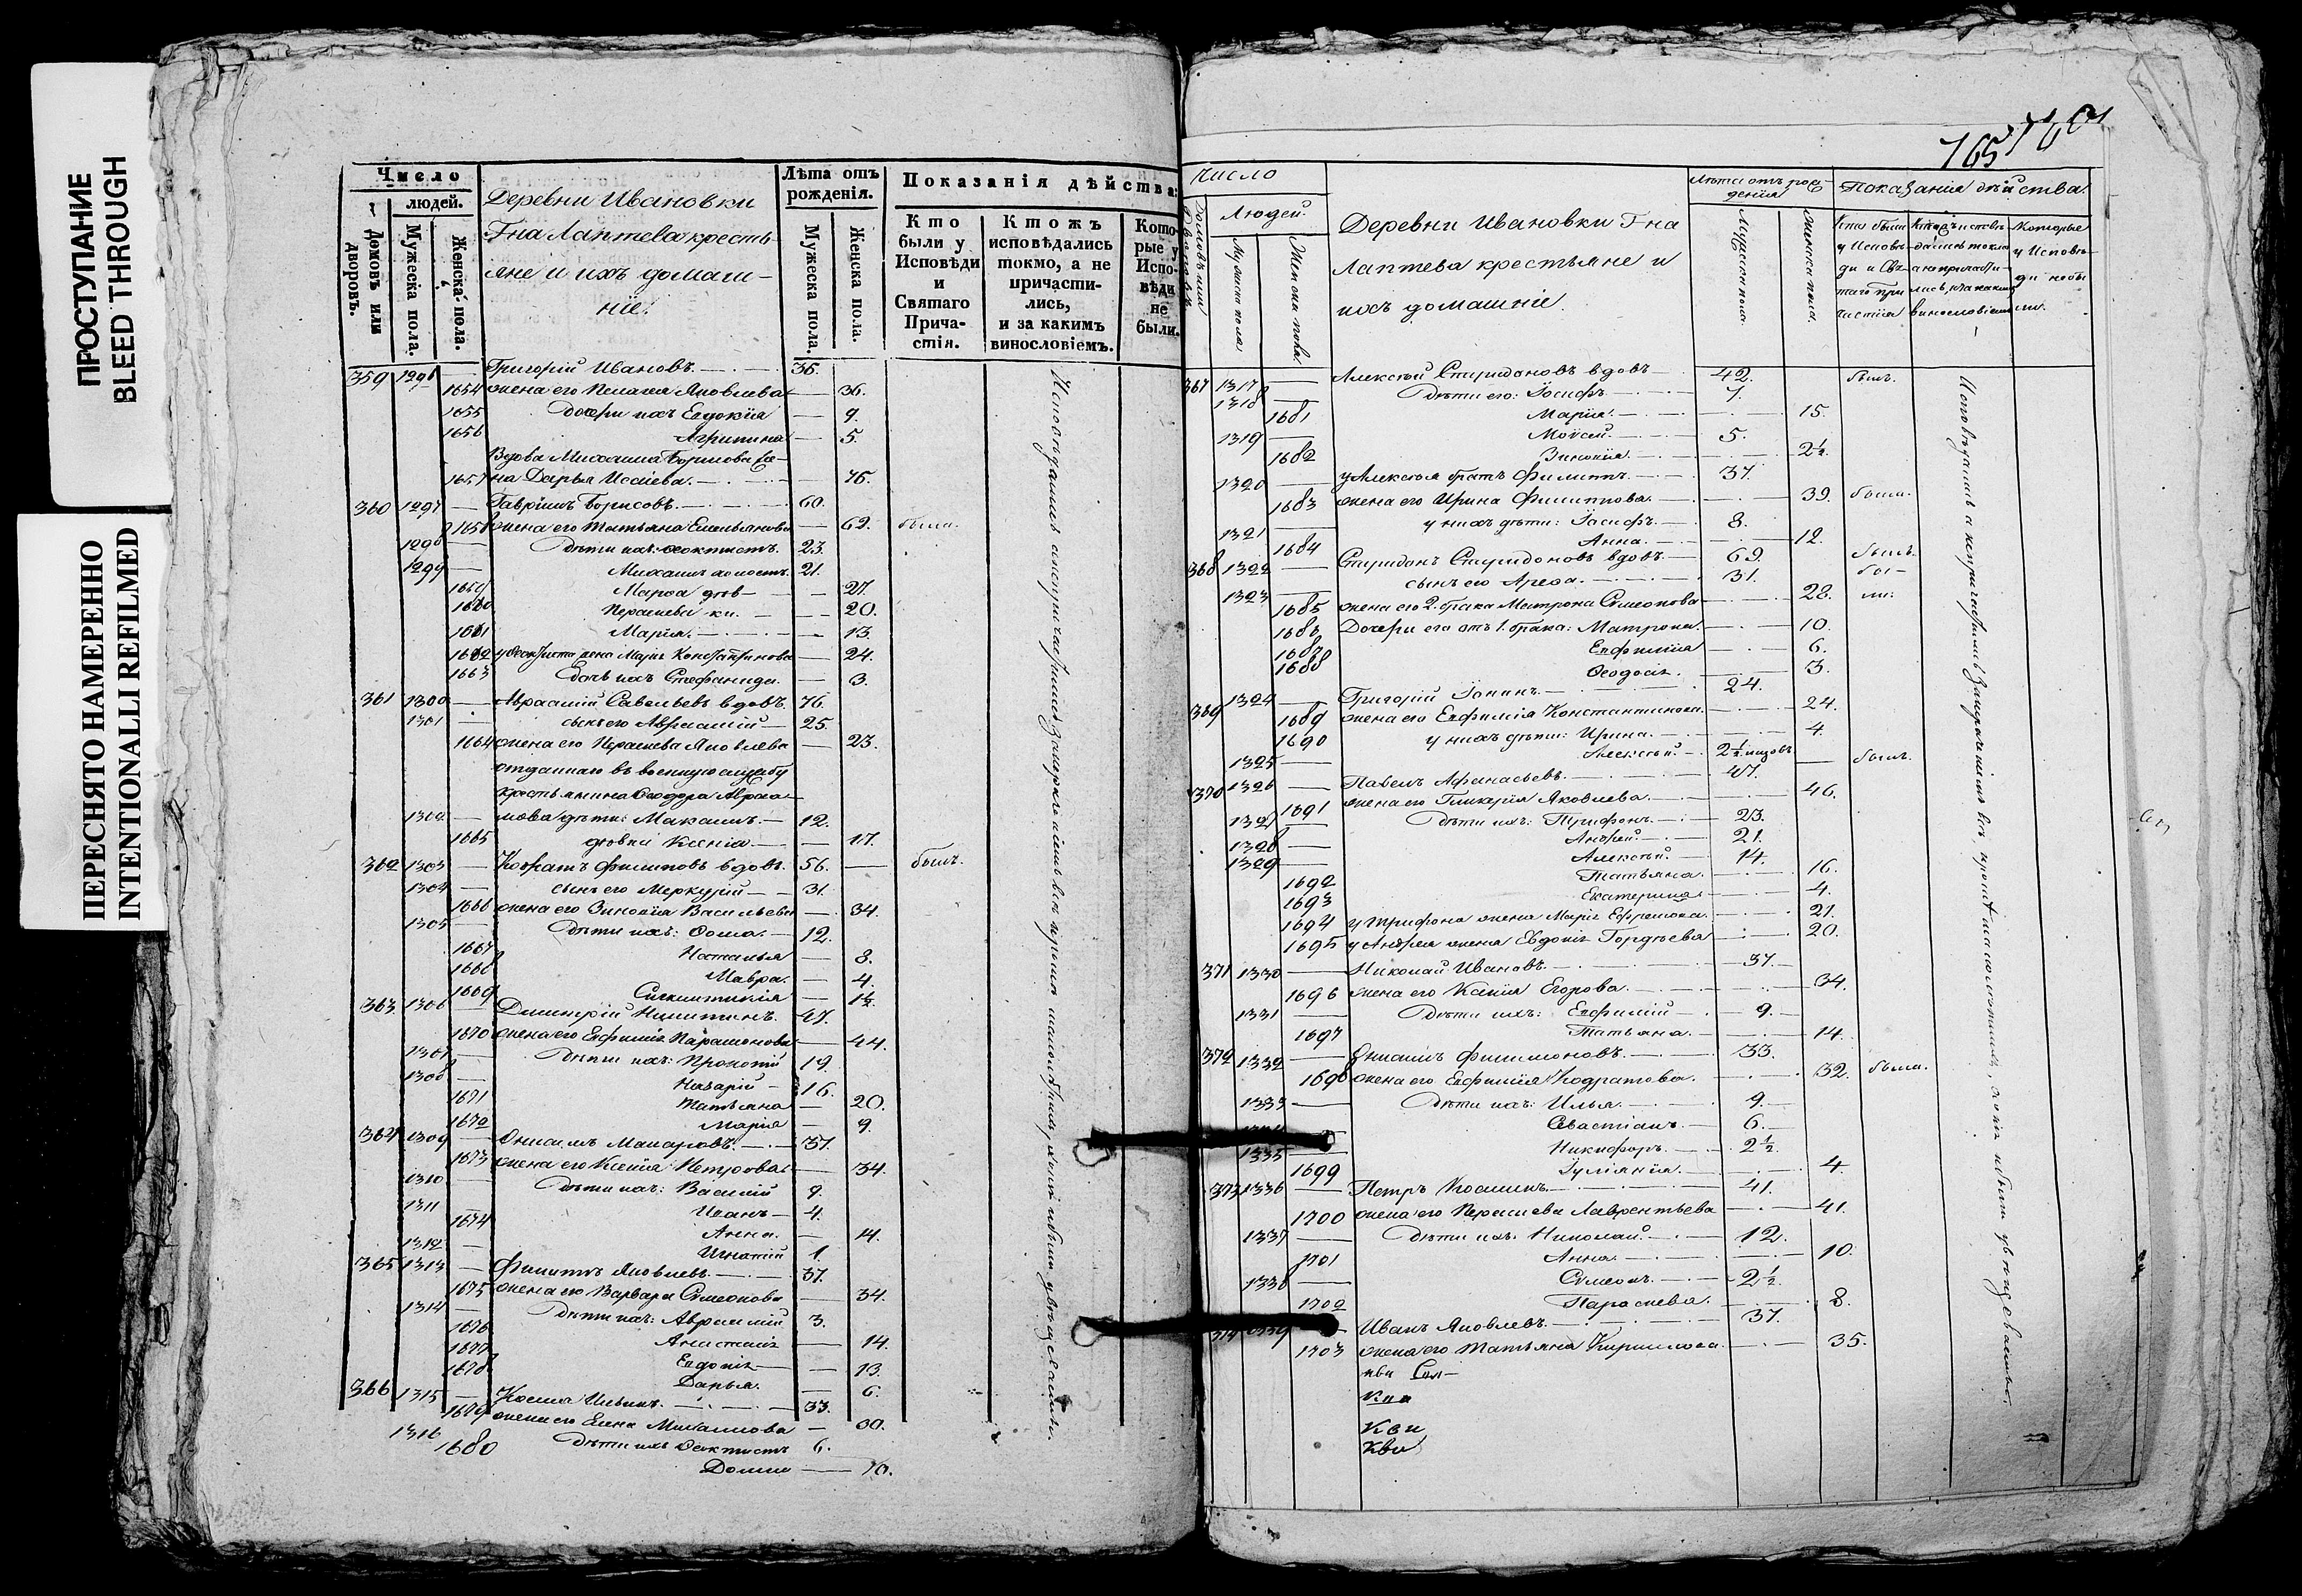 ПРОСТУПАНИЕ
BLEED THROUGH
ПЕРЕСНЯТО НАМЕРЕННО
INTENTIONALLI REFILMED
Число
людей.
Домовъ или дворовъ.
Мужеска пола.
Женска пола.
Деревни Ивановки
Г-на Лаптева кресть-
яне и ихъ домаш-
нiе:
Лѣта отъ рожденiя.
Мужеска пола.
Женска пола.
Показанiя дѣйства:
Кто были у Исповѣди и Святаго Прича-стiя.
Ктожъ исповѣдались токмо, а не причасти-лись, и за какимъ винословiемъ.
Кото-рые у Испо-вѣди не были.
359 1296 — Григорiй Ивановъ. — 36.
1654 жена его Пелагея Яковлева — 36.
1655 дочери ихъ Евдокiя — 9.
1656 Агрипина — 5.
Вдова Михаила Борисова же-
1657 на Дарья Исаiева. — 76.
360 1297 — Гаврiилъ Борисовъ. — 60.
1658 жена его Татьяна Емельянова — 62. была.
1298 — Дѣти ихъ: Феоктистъ. 23.
1299 — Михаилъ холостъ. 21.
1659 Марфа дѣв- — 27.
1660 Параскева ки. — 20.
1661 Марiя. — 13.
1662 у Феоктиста жена Марiя Константинова — 24.
1663 дочь ихъ Стефанида. — 3.
361 1300 — Авраамiй Савельевъ вдовъ. 76.
1301 — сынъ его Авраамiй — 25.
1664 жена его Параскева Яковлева — 23.
отданнаго въ военную службу
крестьянина Феодора Авраа-
1302 — мова дѣти: Максимъ. — 12.
1665 дѣвки Ксенiя. — 17.
362 1303 — Кодратъ Филиповъ вдовъ. 56. — былъ.
1304 — сынъ его Меркурiй — 31.
1666 жена его Зиновiя Васильева — 34.
1305 — Дѣти ихъ: Фома. — 12.
1667 Наталья — 8.
1668 Мавра. — 4.
1669 Сигклитикiя — 1½
363 1306 — Димитрiй Никитинъ. 47.
1670 жена его Евфимiя Парамонова — 44.
1307 — Дѣти ихъ: Прокопiй 19.
1308 — Назарiй — 16.
1671 Татьяна — 20.
1672 Марiя — 9.
364 1309 — Онисимъ Макаровъ. — 37.
1673 жена его Ксенiя Петрова. — 34.
1310 — Дѣти ихъ: Василiй 9.
1311 Иванъ — 4.
1674 Анна. — 14.
1312 — Игнатiй 1.
365 1313 — Филиппъ Яковлевъ. — 37.
1675 жена его Варвара Сѵмеонова — 34.
1314 — Дѣти ихъ: Авраамiй 3.
1676 Анастасiя — 14.
1677 Евдокiя — 13.
1678 Дарья. — 6.
366 1315 — Косма Ильинъ. — 33.
1679 жена его Елена Михаилова — 30.
1316 Дѣти ихъ Феоктистъ 6.
1680 Домна — 10.
165
Число
Людей.
Мужеска пола
Женска пола.
Деревни Ивановки Г-на
Лаптева крестьяне и
ихъ домашнiе.
Лѣта отъ рож-
денiя
Мужеска пола.
Женска пола.
Показанiя дѣйства.
367 1317 — Алексѣй Спиридоновъ вдовъ — 42. былъ.
1318 — Дѣти его: Iосифъ. — 7.
1681 Марiя. — 15.
1319 — Моѵсей. — 5.
1682 Зиновiя. — 2½.
1320 — у Алексѣя братъ Филиппъ. — 37.
1683 жена его Ирина Филиппова. — 39. была.
1321 — у нихъ дѣти: Iосифъ. — 8.
1684 Анна. — 12.
368 1322 — Спиридонъ Спиридоновъ вдовъ. — 69. былъ.
1323 — сынъ его Арефа. — 31. бы-
1685 жена его 2. брака Матрона Сѵмеонова — 28. ли:
1686 Дочери его отъ 1. брака: Матрона. — 10.
1687 Евфимiя — 6.
1688 Феодосiя. — 3.
369 1324 — Григорiй Iонинъ. — 24.
1689 жена его Евфимiя Константинова. — 24.
1690 у нихъ дѣти: Ирина. — 4.
1325 — Алексѣй. — 2½ былъ.
370 1326 — Павелъ Афанасьевъ. — 47.
1691 жена его Гликерiя Яковлева. — 46.
1327 — Дѣти ихъ: Трифонъ. — 23.
1328 — Андрей. — 21.
1329 — Алексѣй. — 14.
1692 Татьяна. — 16.
1693 Екатерина — 4.
1694 у Трифона жена Марiя Ефремова. — 21.
1695 у Андрея жена Евдокiя Гордѣева — 20.
371 1330 — Николай Ивановъ. — 37. —
1696 жена его Ксенiя Егорова. — 34.
1331 — Дѣти ихъ: Евфимiй — 9. —
1697 Татьяна. — 14.
372 1332 — Онисимъ Филимоновъ. — 33.
1698 жена его Евфимiя Кодратова. — 32. была.
1333 — Дѣти ихъ: Илья. — 9. —
Севастiанъ. — 6. —
1335 Никифоръ. — 2½
1699 Iулiанiя. — 4.
373 1336 — Петръ Косминъ. — 41.
1700 жена его Параскева Лаврентьева — 41.
1337 — Дѣти ихъ: Николай. — 12.
1701 Анна. — 10.
1338 — Сѵмеонъ. — 2½.
1702 Параскева. — 8.
374 1339 — Иванъ Яковлевъ. — 37.
1703 жена его Татьяна Кириллова. — 35.